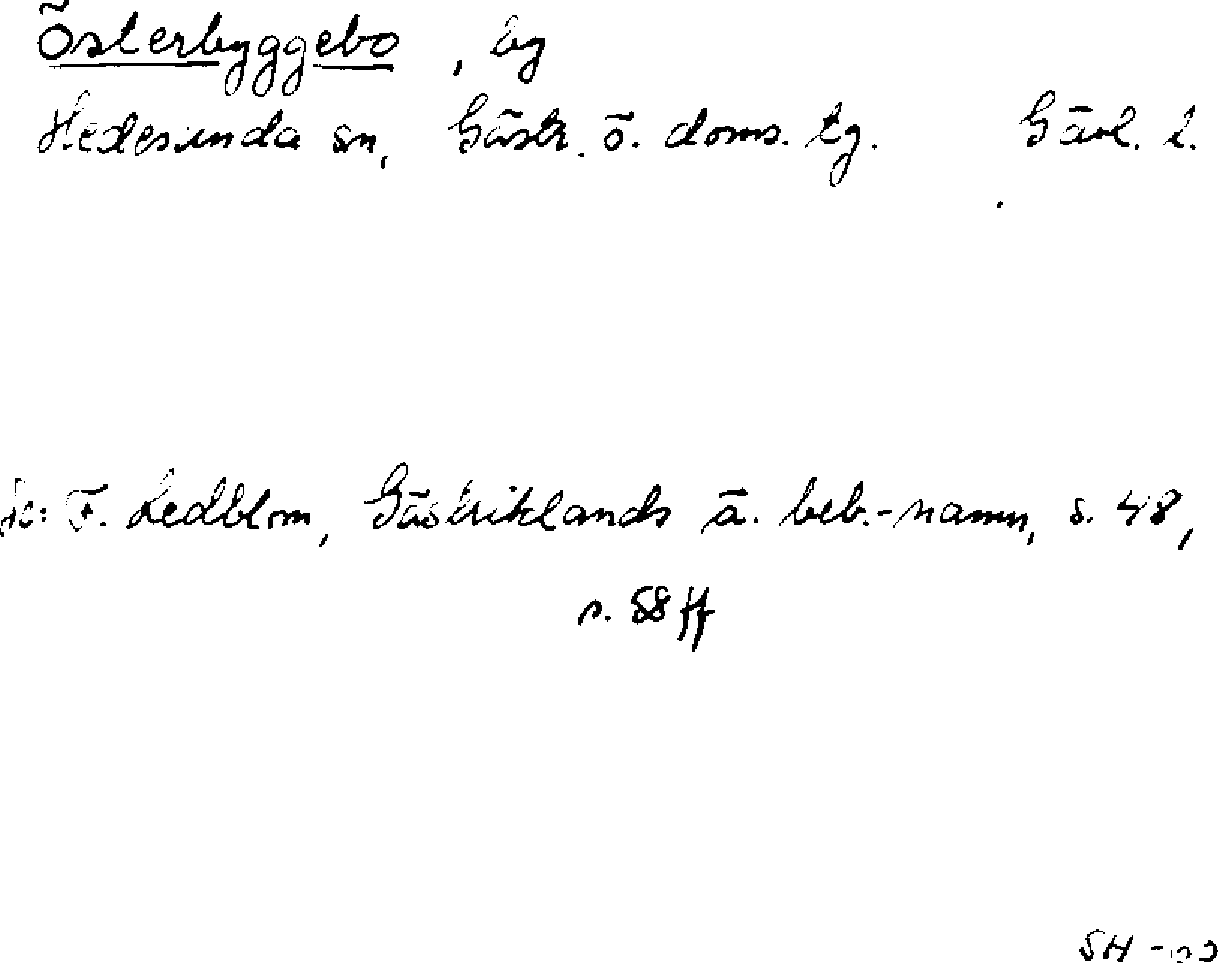 Österbyggebo, by
Hedesunda sn, Gästr. ö. doms. tg. Gävl. l.
F. Ledblom, Gästriklands ä. beb.-namn, s. 48,
s. 58 ff
SH